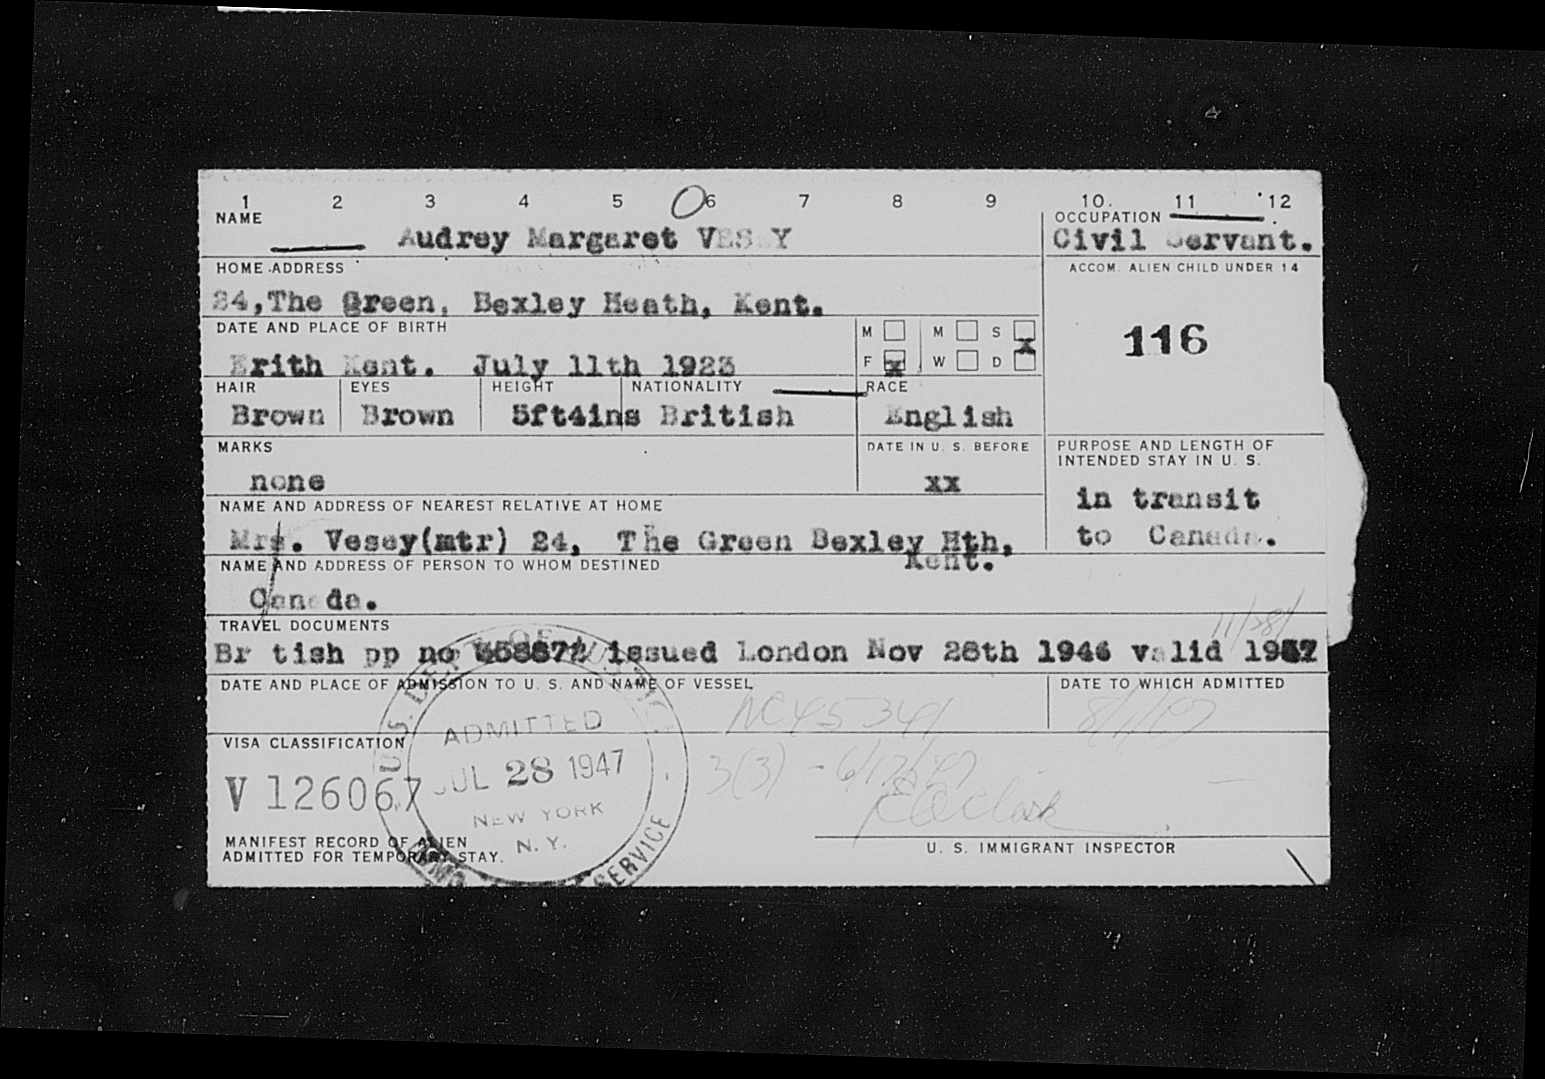 1 2 3 4 5 6 7 8 9 10. 11 12
NAME
Audrey Margaret VESEY
OCCUPATION
Civil Servant.
HOME ADDRESS
24,The Green, Bexley Heath, Kent.
ACCOM. ALIEN CHILD UNDER 14
116
DATE AND PLACE OF BIRTH
Erith Kent. July 11th 1923
M M S
F x W D x
HAIR EYES HEIGHT NATIONALITY RACE
Brown Brown 5ft4ins British English
MARKS
none
DATE IN U. S. BEFORE
xx
PURPOSE AND LENGTH OF
INTENDED STAY IN U. S.
in transit
to Canada.
NAME AND ADDRESS OF NEAREST RELATIVE AT HOME
Mrs. Vesey(mtr) 24, The Green Bexley Hth,
Kent.
NAME AND ADDRESS OF PERSON TO WHOM DESTINED
Canada.
TRAVEL DOCUMENTS
11/28/
Br tish pp no issued London Nov 28th 1946 valid
DATE AND PLACE OF ADMISSION TO U. S. AND NAME OF VESSEL
DATE TO WHICH ADMITTED
NC45341
8/1/47
VISA CLASSIFICATION
V 126067
ADMITTED
JUL 28 1947
NEW YORK
N. Y.
SERVICE
3(3) - 6/17/47
MANIFEST RECORD OF ALIEN
ADMITTED FOR TEMPORARY STAY.
U. S. IMMIGRANT INSPECTOR